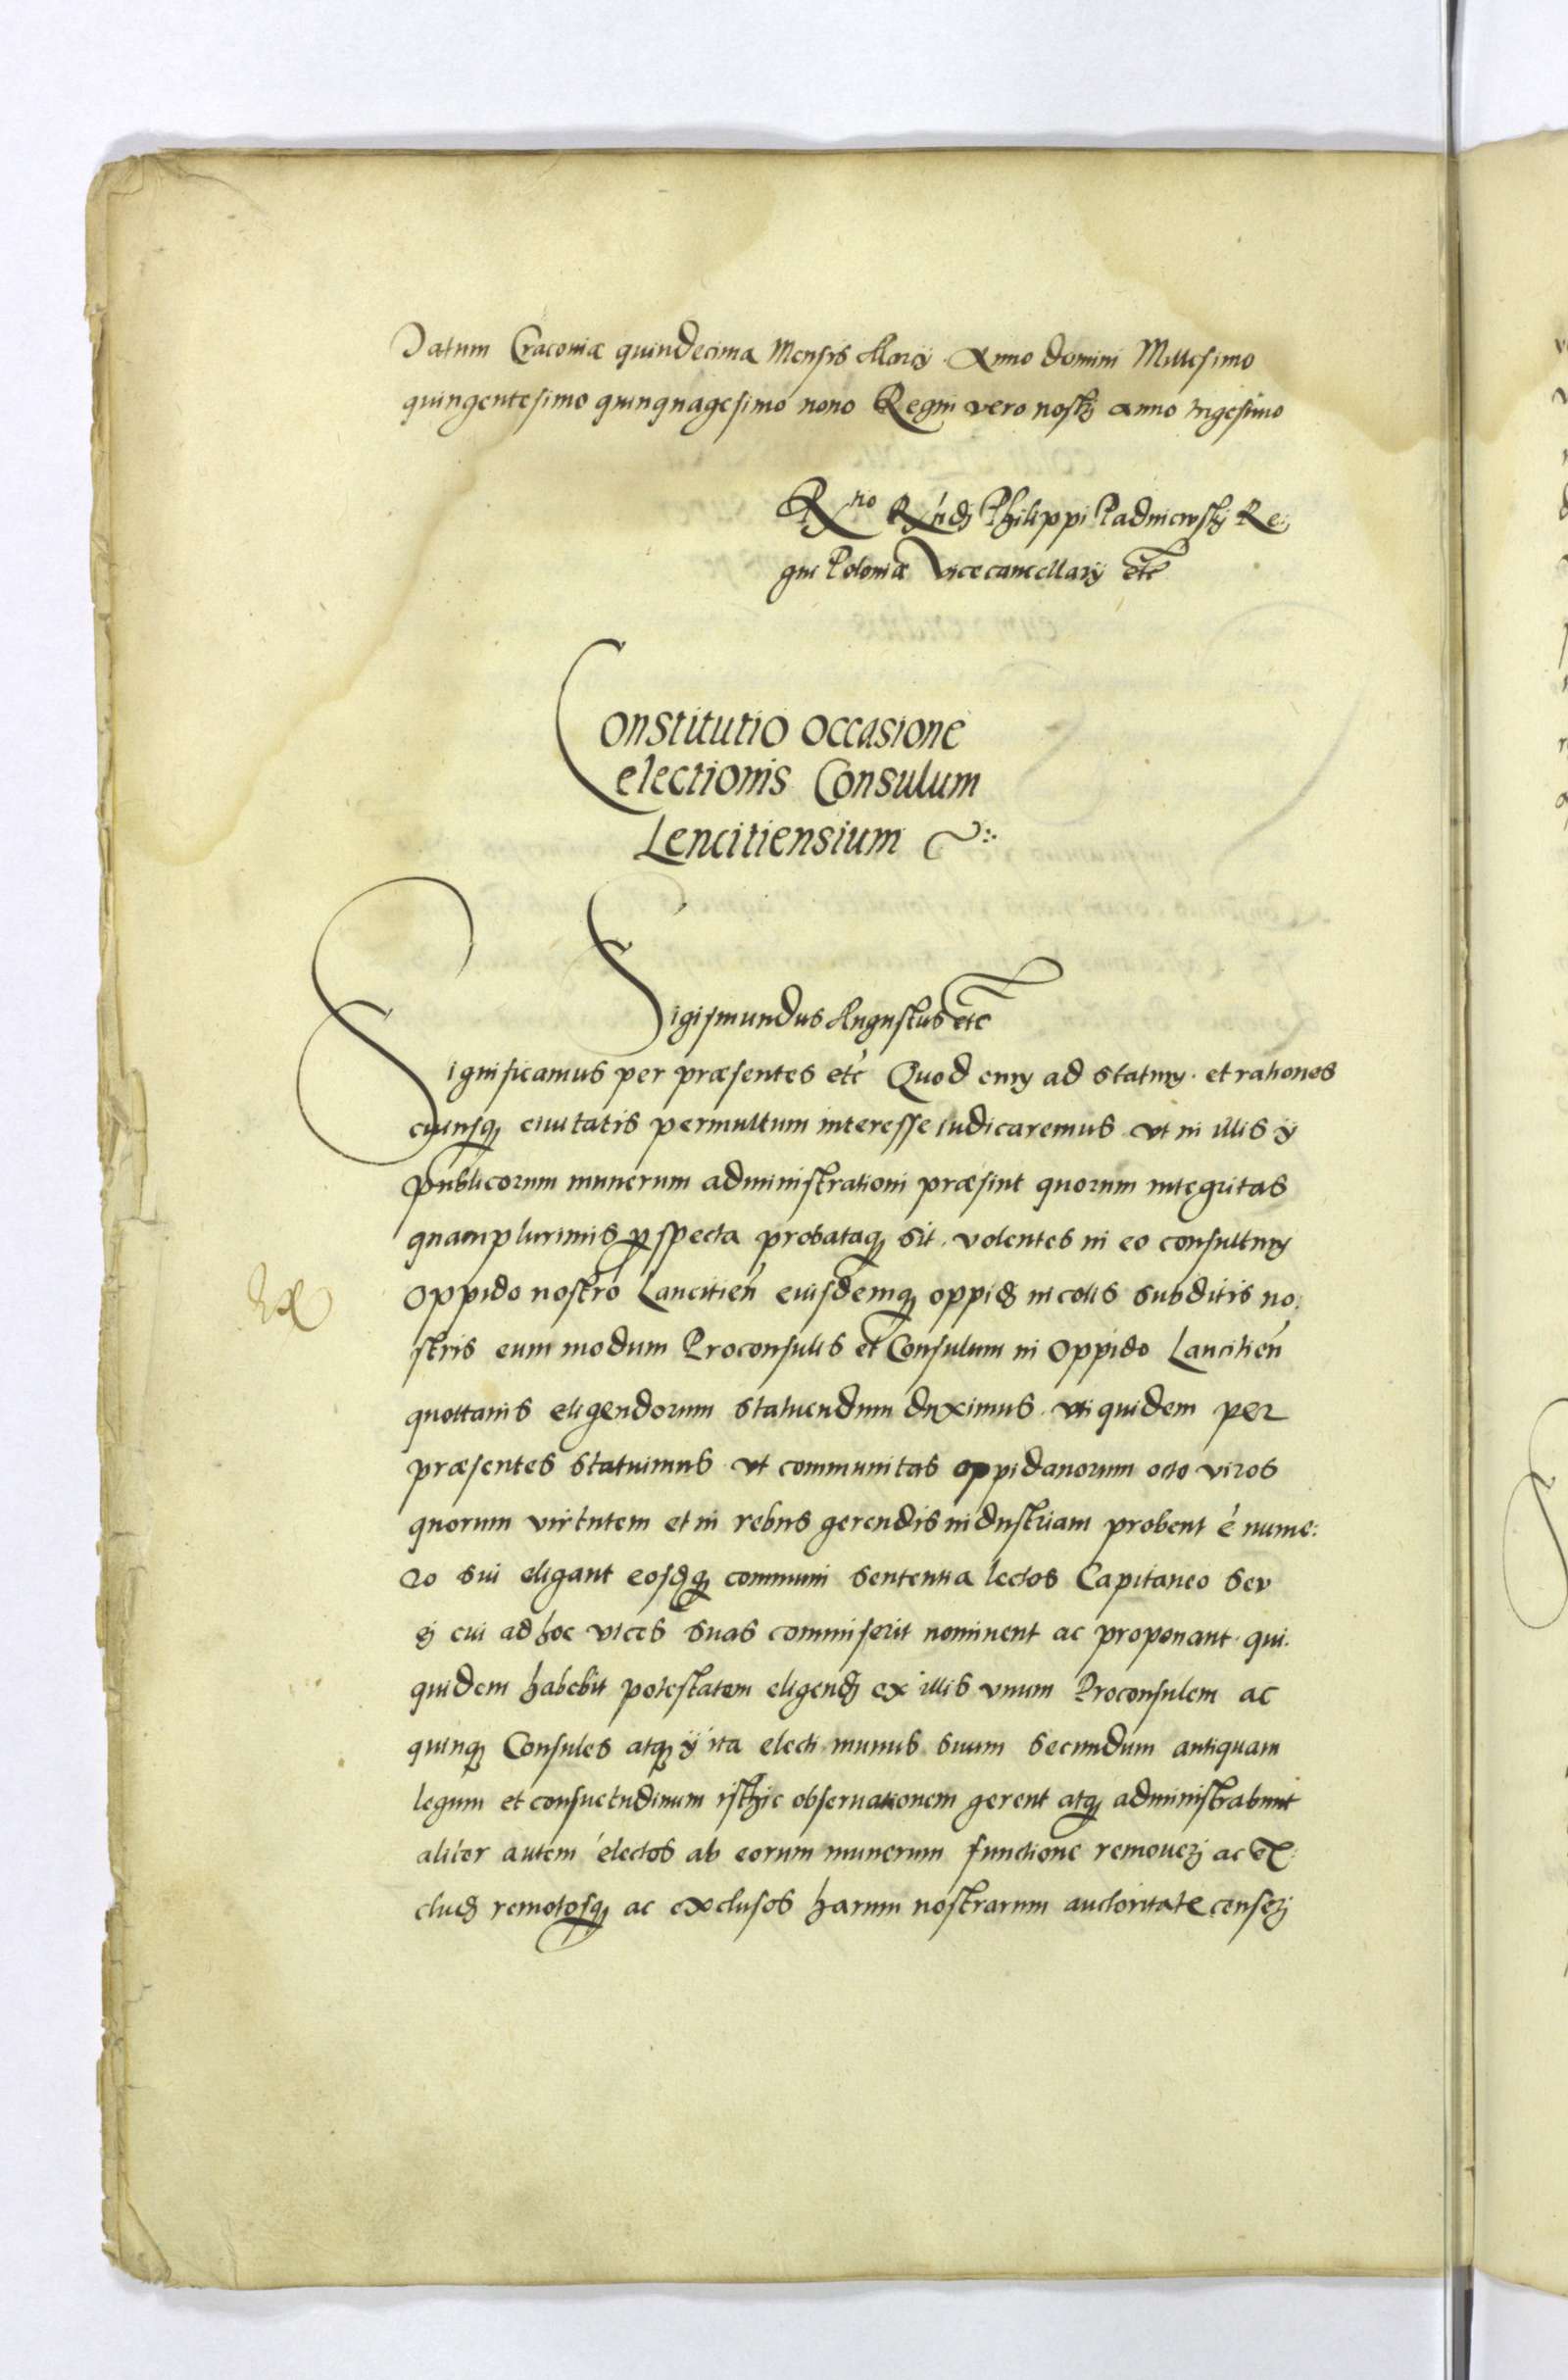 Datum Cracoviæ quindecima Mensis Marÿ Anno domini Millesimo
quingentesimo quinquagesimo nono Regni vero nostrj anno trigesimo
Rno Rndj Philippi Padniewskj Re:
gni Poloniæ Vicecancellarÿ etc
Constitutio occasione
electionis Consulum
Lencitiensium
Sigismundus Augustus etc
Significamus per præsentes etc Quod cum ad statum et rationes
cuiusq ciuitatis permultum interesse iudicaremus vt in illis ÿ
publicorum munerum administrationi præsint quorum integritas
quamplurimis perspecta probataq sit. volentes in eo consultum
oppido nostro Lancitien eiusdemq oppidj incolis subditis no:
stris eum modum Proconsulis et Consulum in oppido Lancitien
quottanis eligendorum statuendum duximus. vti quidem per
præsentes statuimus vt communitas oppidanorum octo viros
quorum virtutem et in rebus gerendis industriam probent é nume:
ro sui eligant eosdq communi sententia lectos Capitaneo seu
ej cui ad hoc vices suas commiserit nominent ac proponant. qui.
quidem habebit potestatem eligendj ex illis vnum Proconsulem ac
quinq Consules atq ÿ ita electi munus suum secundum antiquam
legum et consuetudinum isthic obseruationem gerent atq administrabunt
aliter autem electos ab eorum munerum functione removerj ac ex:
cludj remotosq ac exclusos harum nostrarum auctoritate censerj